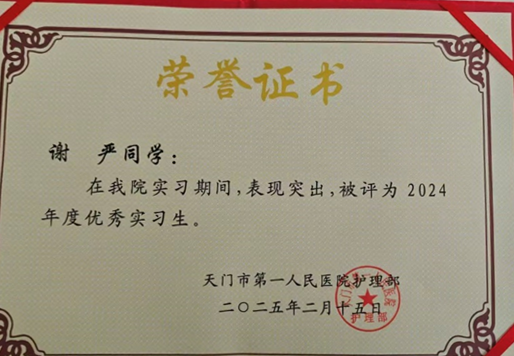 荣誉证书
谢 严同学：
在我院实习期间，表现突出，被评为 2024
年度优秀实习生。
天门市第一人民医院护理部
二〇二五年二月十五日
护理部